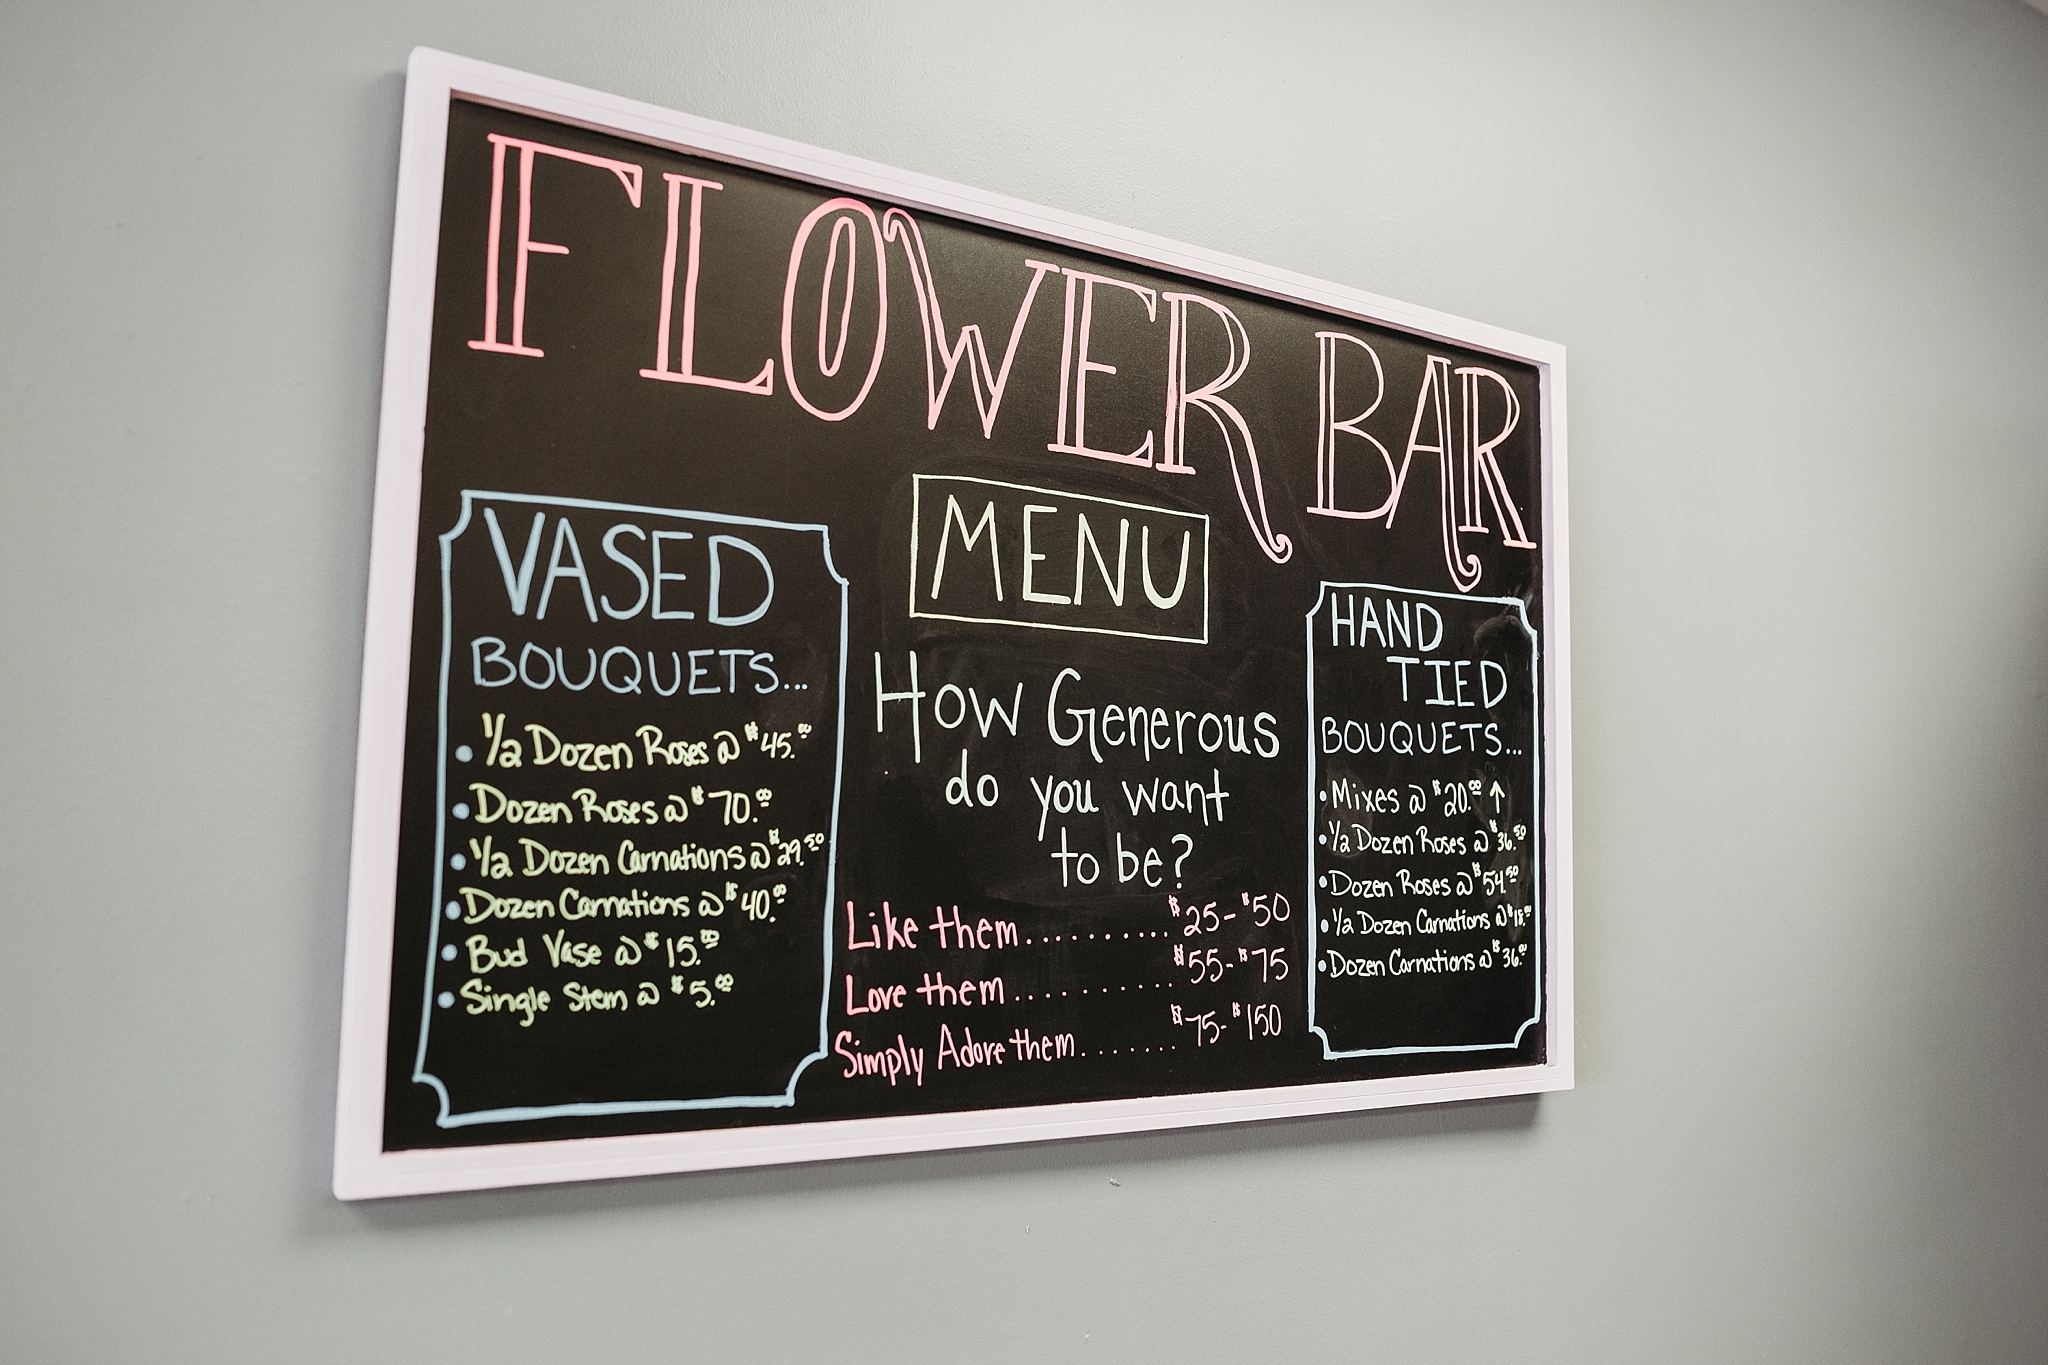 FLOWER BAR
MENU
VASED
BOUQUETS...
• 1/2 Dozen Roses @ $45.00
• Dozen Roses @ $70.00
• 1/2 Dozen Carnations @ $29.50
• Dozen Carnations @ $40.00
• Bud Vase @ $15.00
• Single Stem @ $5.00
How Generous
do you want
to be?
Like them.......... $25-$50
Love them.......... $55-$75
Simply Adore them....... $75-$150
HAND
TIED
BOUQUETS...
• Mixes @ $20.00 ↑
• 1/2 Dozen Roses @ $36.50
• Dozen Roses @ $54.50
• 1/2 Dozen Carnations @ $18.00
• Dozen Carnations @ $36.00